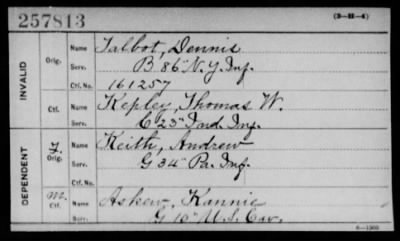 257813
(3-H-4)
INVALID
Orig.
Name Talbot, Dennis
Serv. B. 86" N.Y. Inf.
Ctf. No. 161257
Ctf.
Name Kepley, Thomas W.
Serv. C 23" Ind. Inf.
DEPENDENT
F.
Orig.
Name Keith, Andrew
Serv. G 34" Pa. Inf.
Ctf. No.
M.
Ctf.
Name Askew, Kannie
Serv. G 10" U.S. Cav.